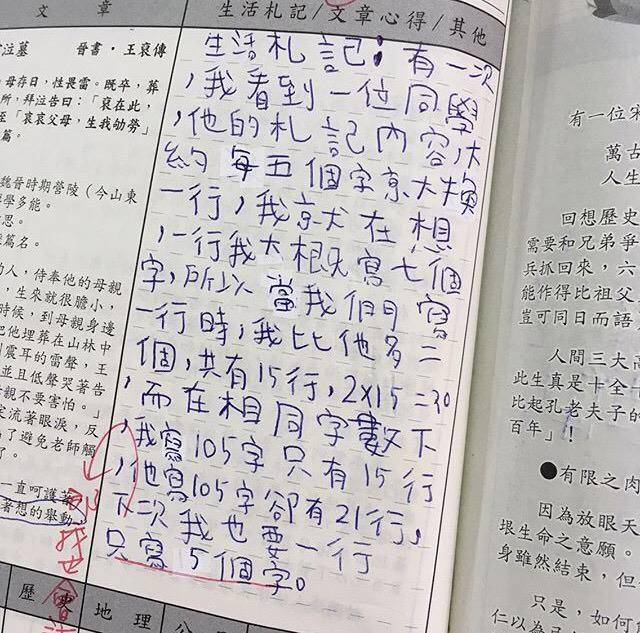 文 章
泣墓 晉書・王裒傳
母存日，性畏雷。既卒，葬
所，拜泣告曰：「裒在此，
至「哀哀父母，生我劬勞」
篇。
魏晉時期營陵（今山東
學多能。
思。
篇名。
的人，侍奉他的母親
，生來就很膽小，
時候，到母親身邊
把他埋葬在山林中
到震耳的雷聲，王
並且低聲哭著告
母親不要害怕。」
定流著眼淚，反
為了避免老師觸
了。
一直呵護著
著想的舉動
生活札記/文章心得/其他
生活札記：有一次
，我看到一位同學
，他的札記內容，大
約每五個字就換
一行，我就在想
，一行我大概寫七個
字，所以當我們寫
一行時，我比他多二
個，共有15行，2×15=30
，而在相同字數下
，我寫105字只有15行
，他寫105字卻有21行，
下次我也要一行
只寫5個字。
歷史 地理
有一位宋
萬古
人生
回想歷史
需要和兄弟爭
兵抓回來，六
能作得比祖父
豈可同日而語
人間三大高
此生真是十全十
比起孔老夫子的
百年」！
●有限之肉
因為放眼天
垠生命之意願。
身雖然結束，但
只是，如何
仁以為己